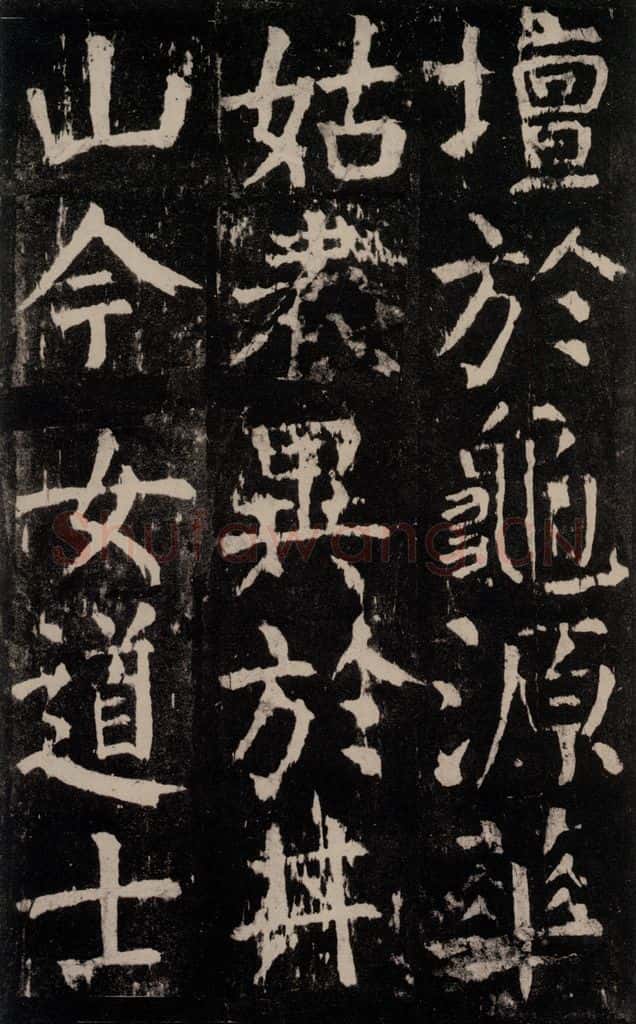 壇於龜源華
姑表異於井
山今女道士
Shufawang.CN